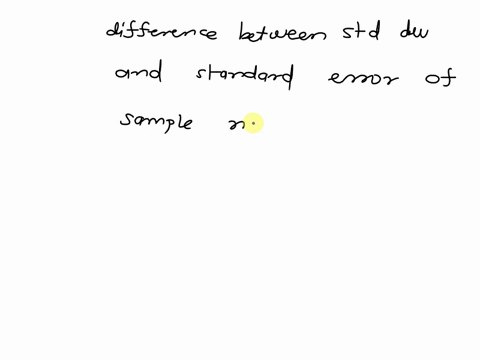 difference between std dev
and standard error of
sample